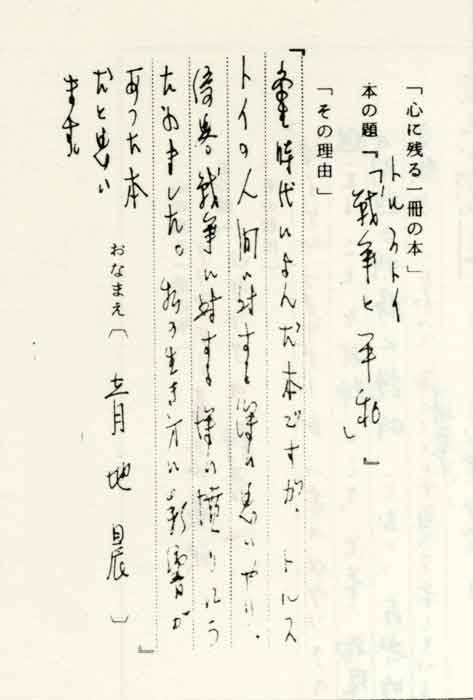 「心に残る一冊の本」
トルストイ
本の題『「戦争と平和」』
「その理由」
『学生時代によんだ本ですが、トルス
トイの人間に対する深い思いやり、
戦争に対する深い憤りにう
たれました。私の生き方に影響が
あった本
だと思い
ます。』
おなまえ〔青地晨〕